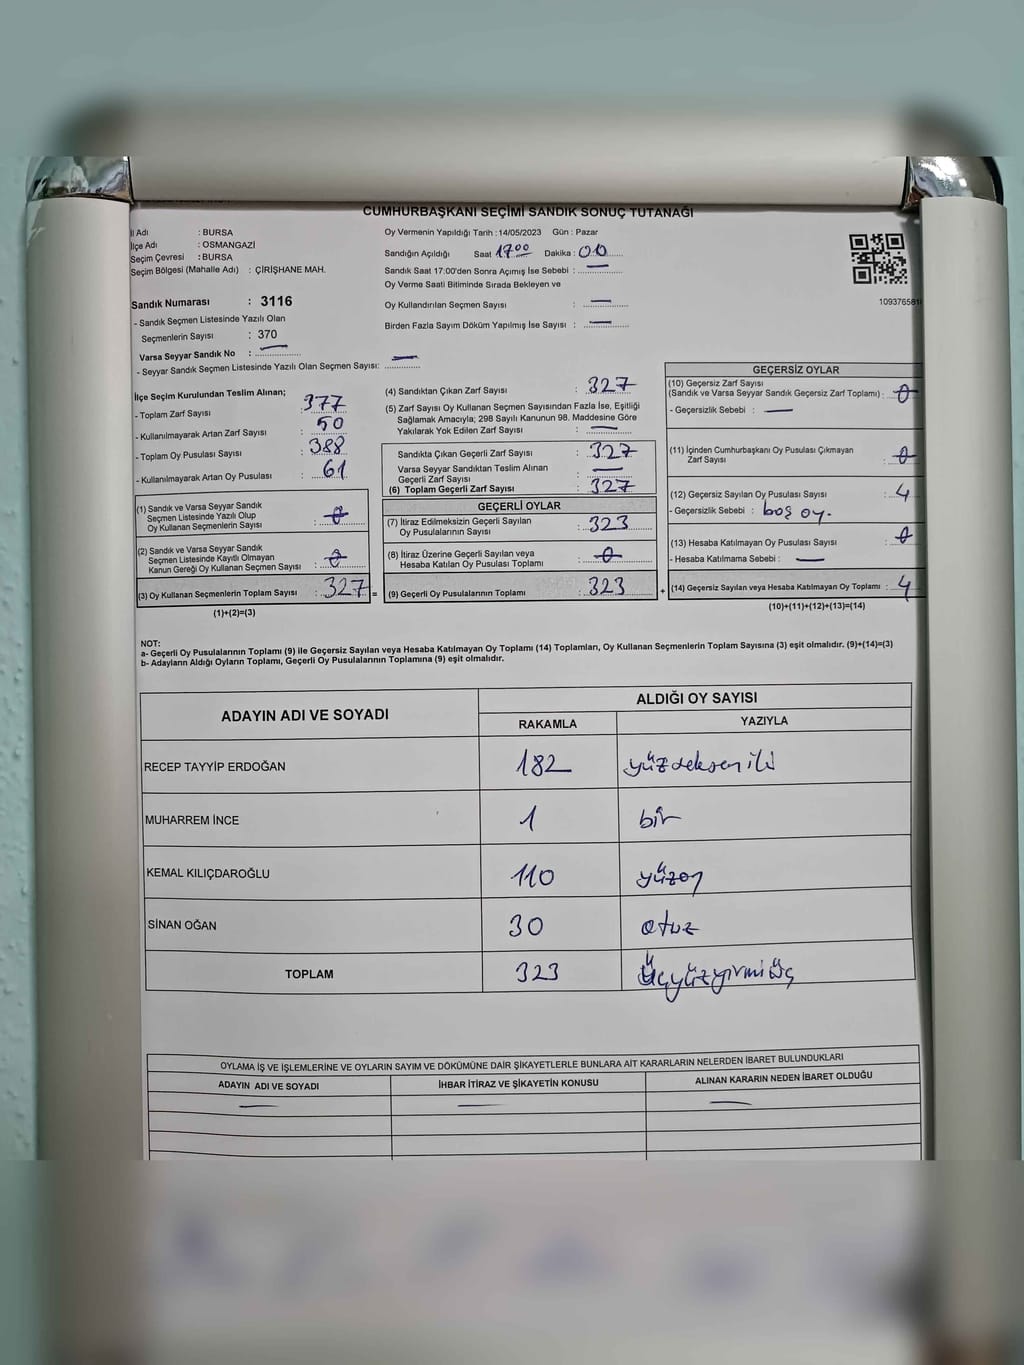 CUMHURBAŞKANI SEÇİMİ SANDIK SONUÇ TUTANAĞI
İl Adı : BURSA
İlçe Adı : OSMANGAZİ
Seçim Çevresi : BURSA
Seçim Bölgesi (Mahalle Adı) : ÇİRİŞHANE MAH.
Sandık Numarası : 3116
- Sandık Seçmen Listesinde Yazılı Olan
Seçmenlerin Sayısı : 370
Varsa Seyyar Sandık No : —
- Seyyar Sandık Seçmen Listesinde Yazılı Olan Seçmen Sayısı: —
Oy Vermenin Yapıldığı Tarih :14/05/2023 Gün : Pazar
Sandığın Açıldığı Saat 17:00 Dakika : 00
Sandık Saat 17:00'den Sonra Açımış İse Sebebi : —
Oy Verme Saati Bitiminde Sırada Bekleyen ve
Oy Kullandırılan Seçmen Sayısı : —
Birden Fazla Sayım Döküm Yapılmış İse Sayısı : —
109376581
İlçe Seçim Kurulundan Teslim Alınan;
- Toplam Zarf Sayısı : 377
- Kullanılmayarak Artan Zarf Sayısı : 50
- Toplam Oy Pusulası Sayısı : 388
- Kullanılmayarak Artan Oy Pusulası : 61
(1) Sandık ve Varsa Seyyar Sandık
Seçmen Listesinde Yazılı Olup
Oy Kullanan Seçmenlerin Sayısı : 0
(2) Sandık ve Varsa Seyyar Sandık
Seçmen Listesinde Kayıtlı Olmayan
Kanun Gereği Oy Kullanan Seçmen Sayısı : 0
(3) Oy Kullanan Seçmenlerin Toplam Sayısı : 327 =
(1)+(2)=(3)
(4) Sandıktan Çıkan Zarf Sayısı : 327
(5) Zarf Sayısı Oy Kullanan Seçmen Sayısından Fazla İse, Eşitliği
Sağlamak Amacıyla; 298 Sayılı Kanunun 98. Maddesine Göre
Yakılarak Yok Edilen Zarf Sayısı : —
Sandıkta Çıkan Geçerli Zarf Sayısı : 327
Varsa Seyyar Sandıktan Teslim Alınan
Geçerli Zarf Sayısı : —
(6) Toplam Geçerli Zarf Sayısı : 327
GEÇERLİ OYLAR
(7) İtiraz Edilmeksizin Geçerli Sayılan
Oy Pusulalarının Sayısı : 323
(8) İtiraz Üzerine Geçerli Sayılan veya
Hesaba Katılan Oy Pusulası Toplamı : 0
(9) Geçerli Oy Pusulalarının Toplamı : 323 +
GEÇERSİZ OYLAR
(10) Geçersiz Zarf Sayısı
(Sandık ve Varsa Seyyar Sandık Geçersiz Zarf Toplamı) : 0
- Geçersizlik Sebebi : —
(11) İçinden Cumhurbaşkanı Oy Pusulası Çıkmayan
Zarf Sayısı : 0
(12) Geçersiz Sayılan Oy Pusulası Sayısı : 4
- Geçersizlik Sebebi : boş oy.
(13) Hesaba Katılmayan Oy Pusulası Sayısı : 0
- Hesaba Katılmama Sebebi : —
(14) Geçersiz Sayılan veya Hesaba Katılmayan Oy Toplamı : 4
(10)+(11)+(12)+(13)=(14)
NOT:
a- Geçerli Oy Pusulalarının Toplamı (9) ile Geçersiz Sayılan veya Hesaba Katılmayan Oy Toplamı (14) Toplamları, Oy Kullanan Seçmenlerin Toplam Sayısına (3) eşit olmalıdır. (9)+(14)=(3)
b- Adayların Aldığı Oyların Toplamı, Geçerli Oy Pusulalarının Toplamına (9) eşit olmalıdır.
ADAYIN ADI VE SOYADI ALDIĞI OY SAYISI
RAKAMLA YAZIYLA
RECEP TAYYİP ERDOĞAN 182 yüzseksen iki
MUHARREM İNCE 1 bir
KEMAL KILIÇDAROĞLU 110 yüzon
SİNAN OĞAN 30 otuz
TOPLAM 323 üçyüzyirmiüç
OYLAMA İŞ VE İŞLEMLERİNE VE OYLARIN SAYIM VE DÖKÜMÜNE DAİR ŞİKAYETLERLE BUNLARA AİT KARARLARIN NELERDEN İBARET BULUNDUKLARI
ADAYIN ADI VE SOYADI İHBAR İTİRAZ VE ŞİKAYETİN KONUSU ALINAN KARARIN NEDEN İBARET OLDUĞU
— — —